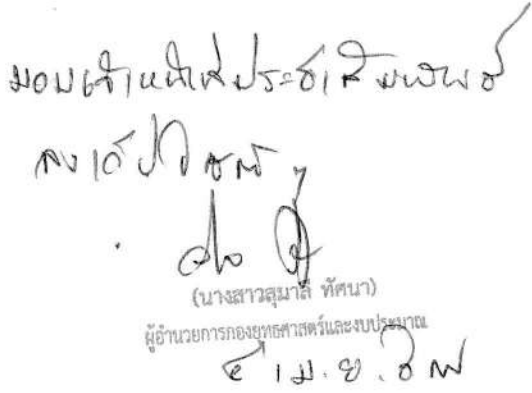 มอบเจ้าหน้าที่ประชาสัมพันธ์
ลงเว็บไซต์
(นางสาวสุมาลี ทัศนา)
ผู้อำนวยการกองยุทธศาสตร์และงบประมาณ
เม.ย.